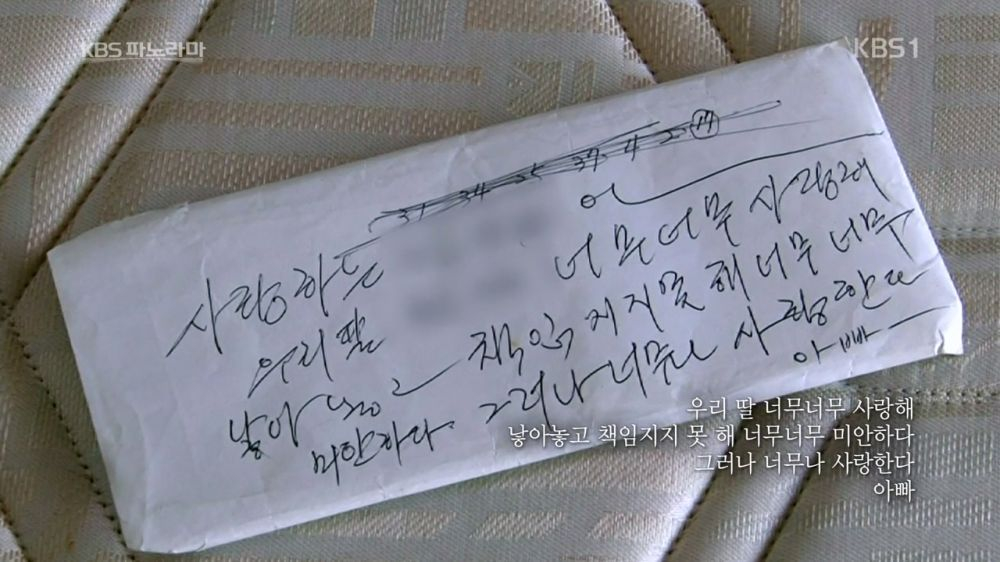 KBS 파노라마
KBS1
31 34 25 37 4 2 17
사랑하는 너무너무 사랑해
우리 딸
낳아 놓고 책임지지 못 해 너무 너무
미안하다. 그러나 너무나 사랑한다
아빠
우리 딸 너무너무 사랑해
낳아놓고 책임지지 못 해 너무너무 미안하다
그러나 너무나 사랑한다
아빠